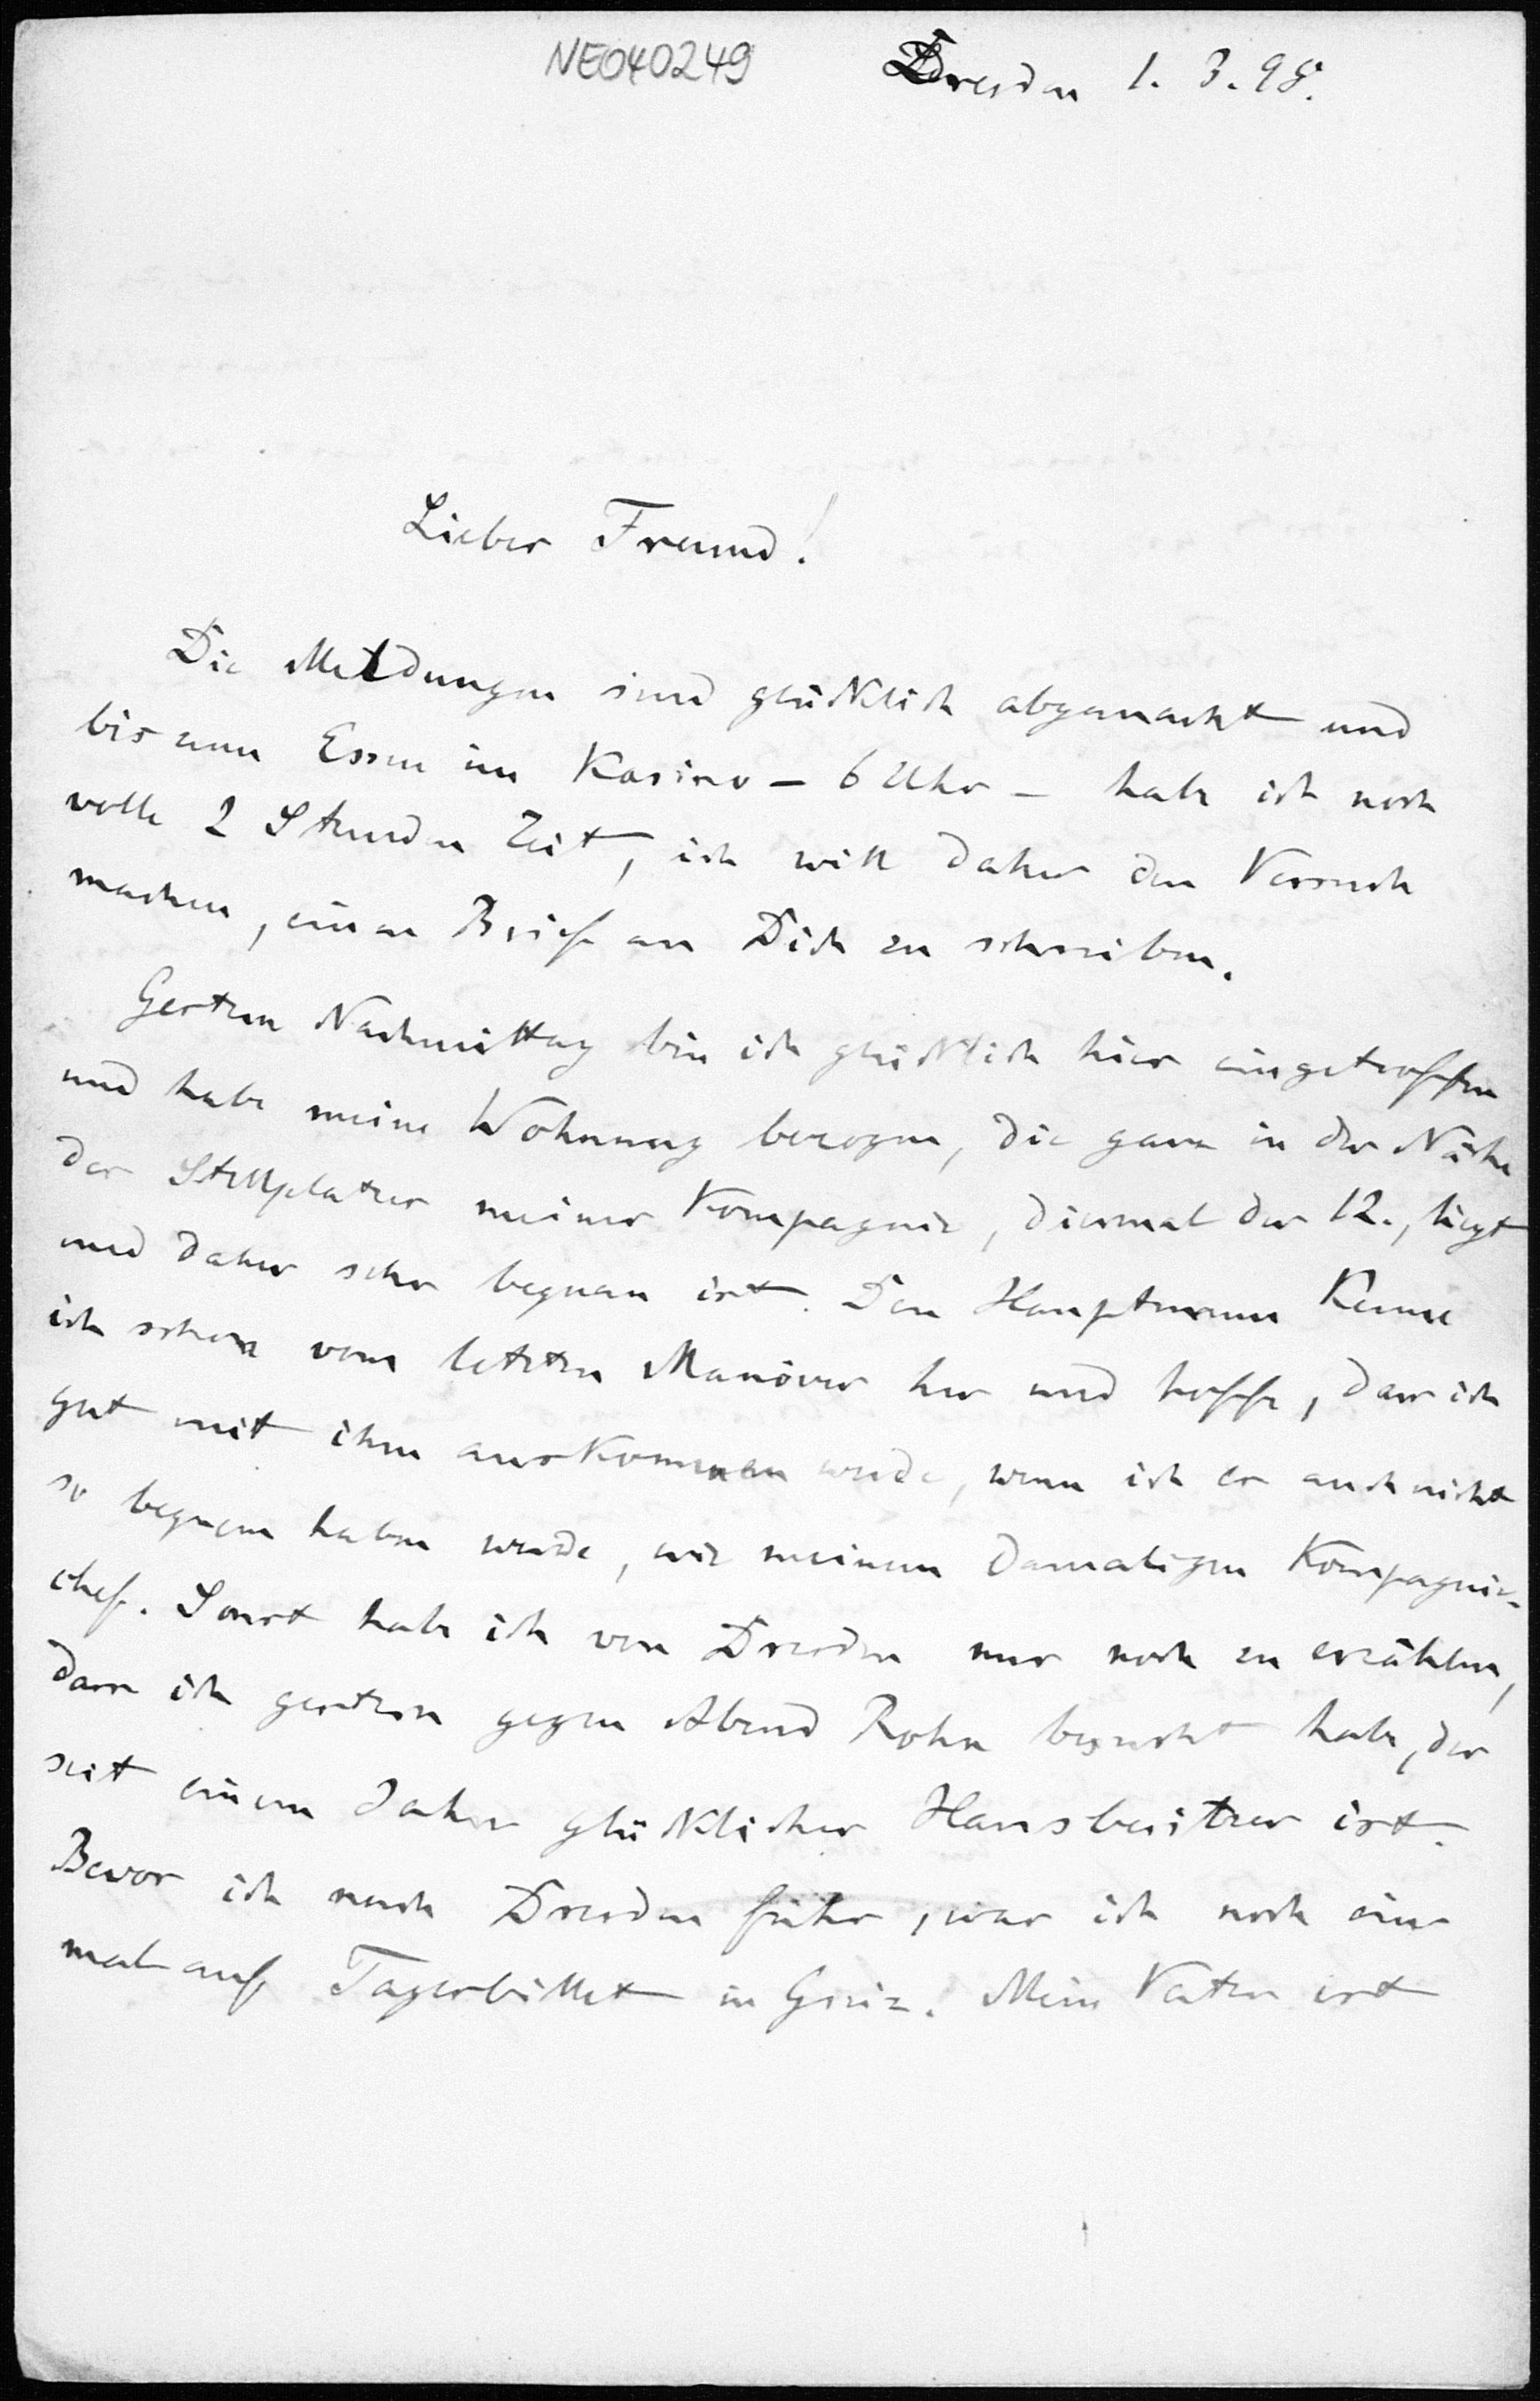 NE040249
Dresden 1. 3. 98.
Lieber Freund!
Die Meldungen sind glücklich abgemacht und
bis zum Essen im Kasino – 6 Uhr – habe ich noch
volle 2 Stunden Zeit, ich will daher den Versuch
machen, einen Brief an Dich zu schreiben.
Gestern Nachmittag bin ich glücklich hier eingetroffen
und habe meine Wohnung bezogen, die ganz in der Nähe
des Stellplatzes meiner Kompagnie, diesmal der 12., liegt
und daher sehr bequem ist. Den Hauptmann kenne
ich schon vom letzten Manöver her und hoffe, dass ich
gut mit ihm auskommen werde, wenn ich es auch nicht
so bequem haben werde, wie meinem damaligen Kompagnie-
chef. Sonst habe ich von Dresden nur noch zu erzählen,
dass ich gestern gegen Abend Rohn besucht habe, der
seit einem Jahre glücklicher Hausbesitzer ist.
Bevor ich nach Dresden fuhr, war ich noch ein-
mal auf Tagesbillet in Greiz. Mein Vater ist